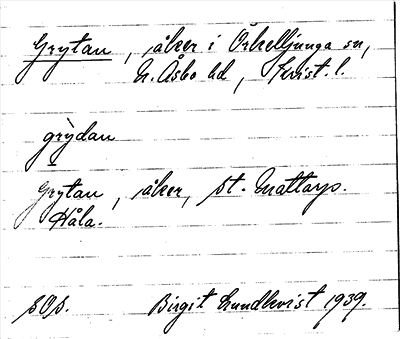 Grytan, åker i Örkelljunga sn,
N. Åsbo hd, Krist. l.
grỳdan
Grytan, åker, st. Mattarps.
Håla.
SOS. Birgit Lundkvist 1939.